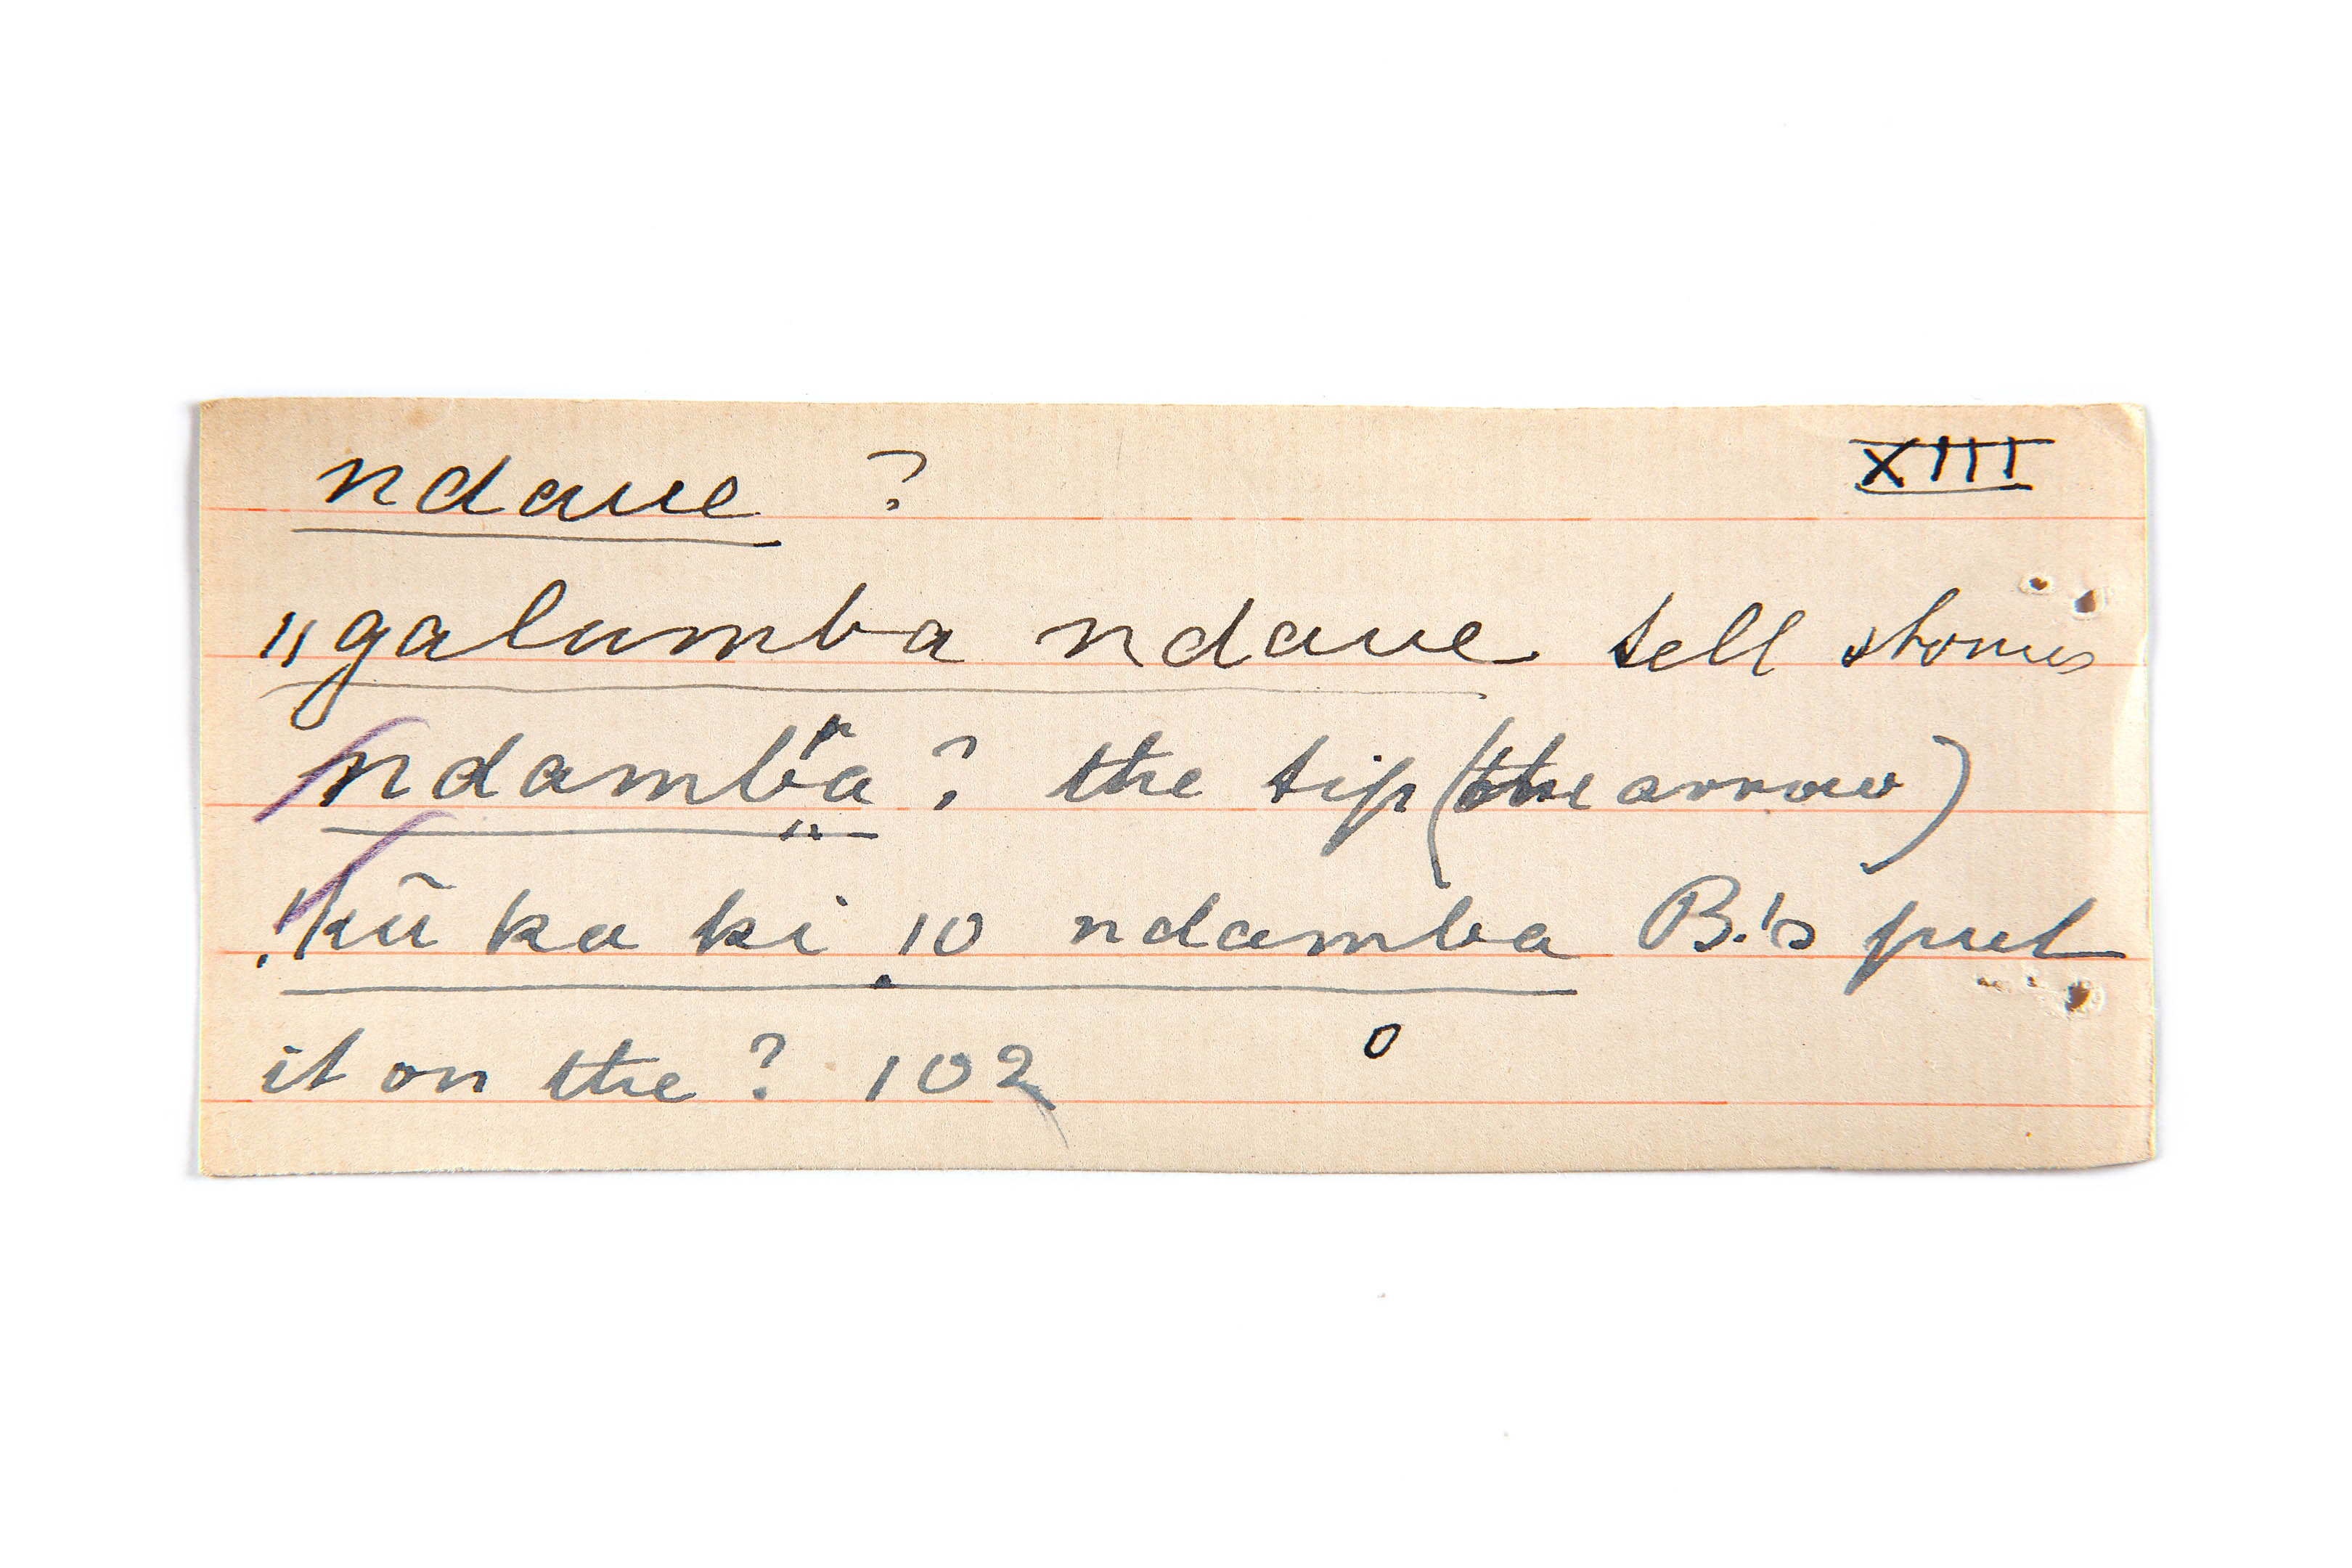 ndaue ? XIII
"galumba ndaue tell stories
ndamba ? the tip (the arrow)
kū ka ki 10 ndamba B.'s put
it on the ? 102 o